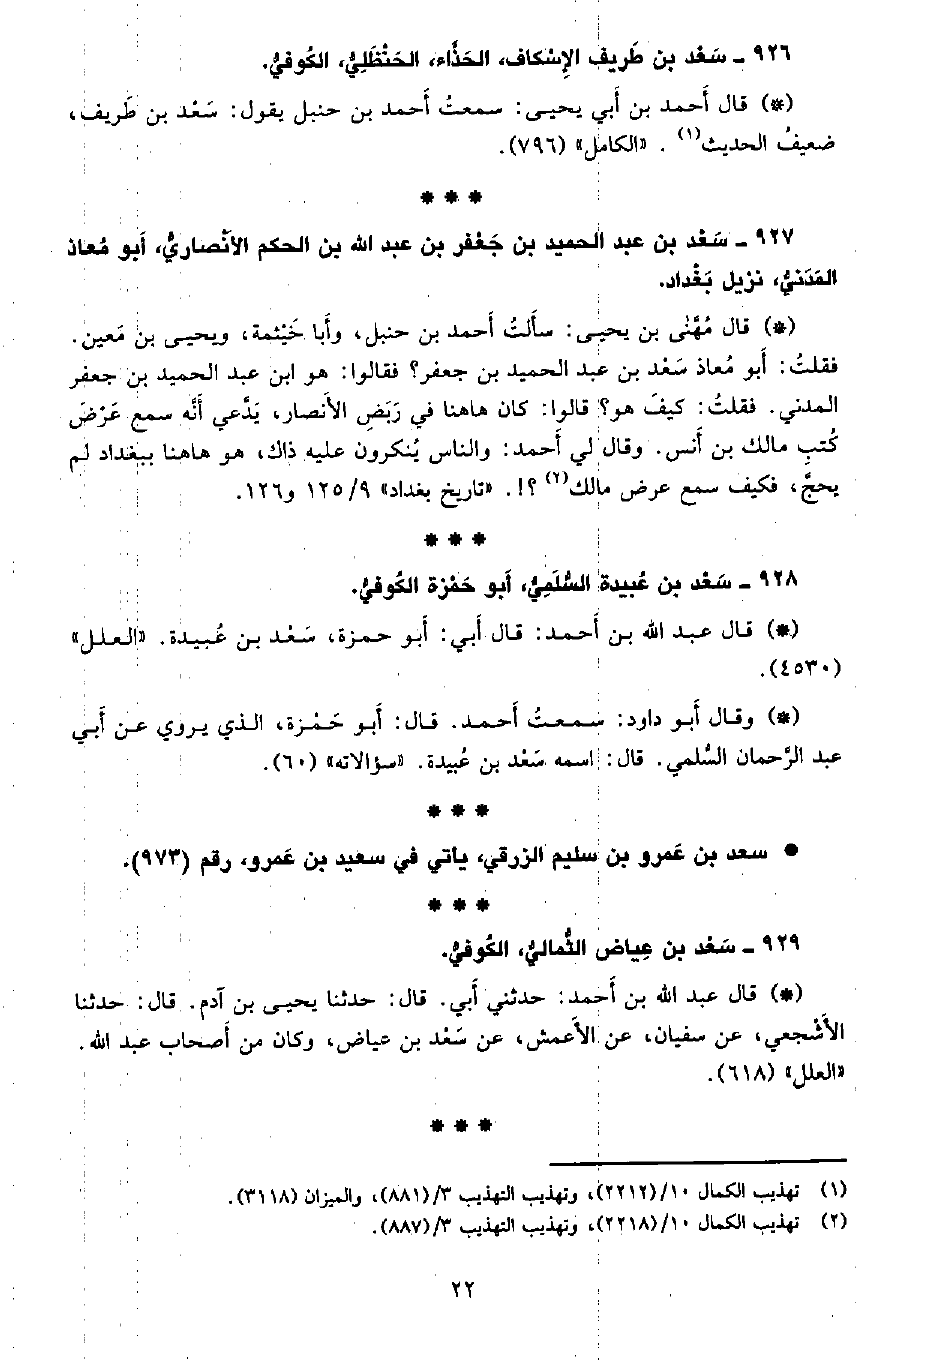 ٩٢٦ ـ سَعْد بن طَريف الإِسْكاف، الحَذَّاء، الحَنْظَلِيُّ، الكُوفيُّ.
(*) قال أَحمد بن أَبي يحيى: سمعتُ أَحمد بن حنبل يقول: سَعْد بن طَريف،
ضعيفُ الحديث(١) . «الكامل» (٧٩٦).
* * *
٩٢٧ ـ سَعْد بن عبد الحميد بن جَعْفر بن عبد الله بن الحكم الأَنْصاريُّ، أَبو مُعاذ
المَدَنيُّ، نزيل بَغْداد.
(*) قال مُهَنَّى بن يحيى: سأَلتُ أَحمد بن حنبل، وأَبا خَيْثمة، ويحيى بن مَعين.
فقلتُ: أَبو مُعاذ سَعْد بن عبد الحميد بن جعفر؟ فقالوا: هو ابن عبد الحميد بن جعفر
المدني. فقلتُ: كيفَ هو؟ قالوا: كان هاهنا في رَبَضِ الأَنصار، يَدَّعي أَنَّه سمع عَرْضَ
كُتبِ مالك بن أَنس. وقال لي أَحمد: والناس يُنكرون عليه ذاك، هو هاهنا ببغداد لم
يحجَّ، فكيف سمع عرض مالك(٢) ؟!. «تاريخ بغداد» ٩/ ١٢٥ و١٢٦.
* * *
٩٢٨ ـ سَعْد بن عُبيدة السُّلَمِيُّ، أَبو حَمْزة الكُوفيُّ.
(*) قال عبد الله بن أَحمد: قال أَبي: أَبو حمزة، سَعْد بن عُبيدة. «العلل»
(٤٥٣٠).
(*) وقال أَبو داود: سمعتُ أَحمد. قال: أَبو حَمْزة، الذي يروي عن أَبي
عبد الرَّحمان السُّلمي. قال: اسمه سَعْد بن عُبيدة. «سؤالاته» (٦٠).
* * *
● سعد بن عَمرو بن سليم الزرقي، يأتي في سعيد بن عَمرو، رقم (٩٧٣).
* * *
٩٢٩ ـ سَعْد بن عِياض الثُّماليُّ، الكُوفيُّ.
(*) قال عبد الله بن أَحمد: حدثني أَبي. قال: حدثنا يحيى بن آدم. قال: حدثنا
الأَشْجعي، عن سفيان، عن الأَعمش، عن سَعْد بن عياض، وكان من أَصحاب عبد الله.
«العلل» (٦١٨).
* * *
(١) تهذيب الكمال ١٠/(٢٢١٢)، وتهذيب التهذيب ٣/(٨٨١)، والميزان (٣١١٨).
(٢) تهذيب الكمال ١٠/(٢٢١٨)، وتهذيب التهذيب ٣/(٨٨٧).
٢٢